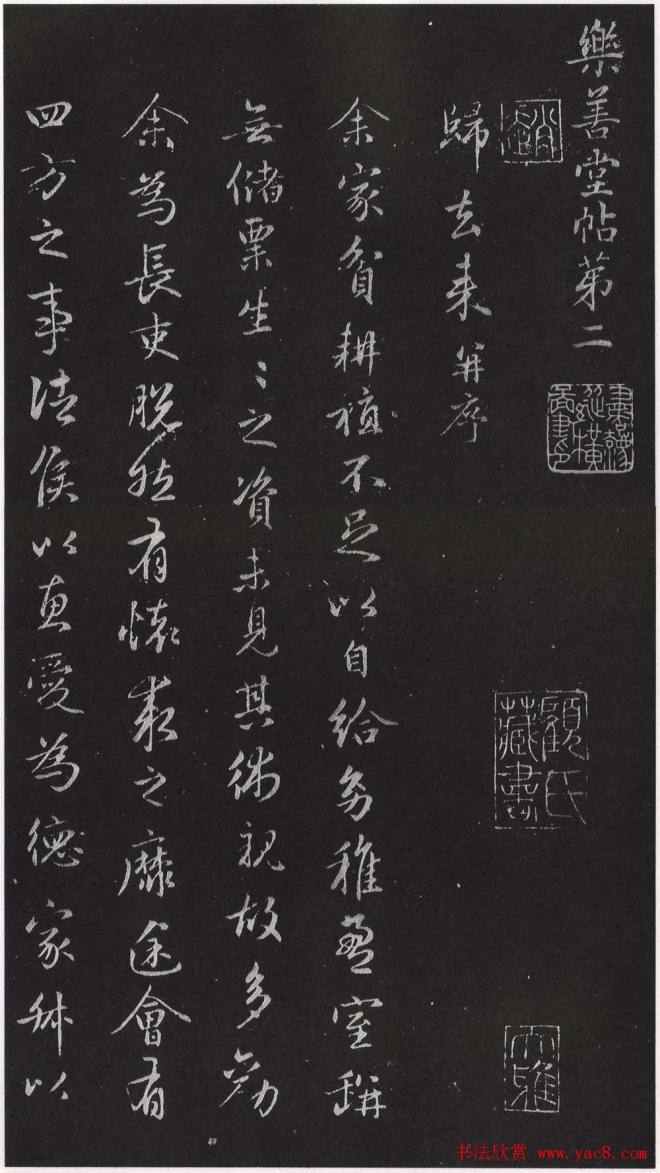 樂善堂帖第二
歸去来并序
顧氏
藏書
大雅
余家貧耕植不足以自給幼稚盈室缾
無儲粟生〻之資未見其術親故多勸
余為長吏脫然有懷求之靡途會有
四方之事諸侯以惠愛為德家叔以
书法欣赏 www.yac8.com